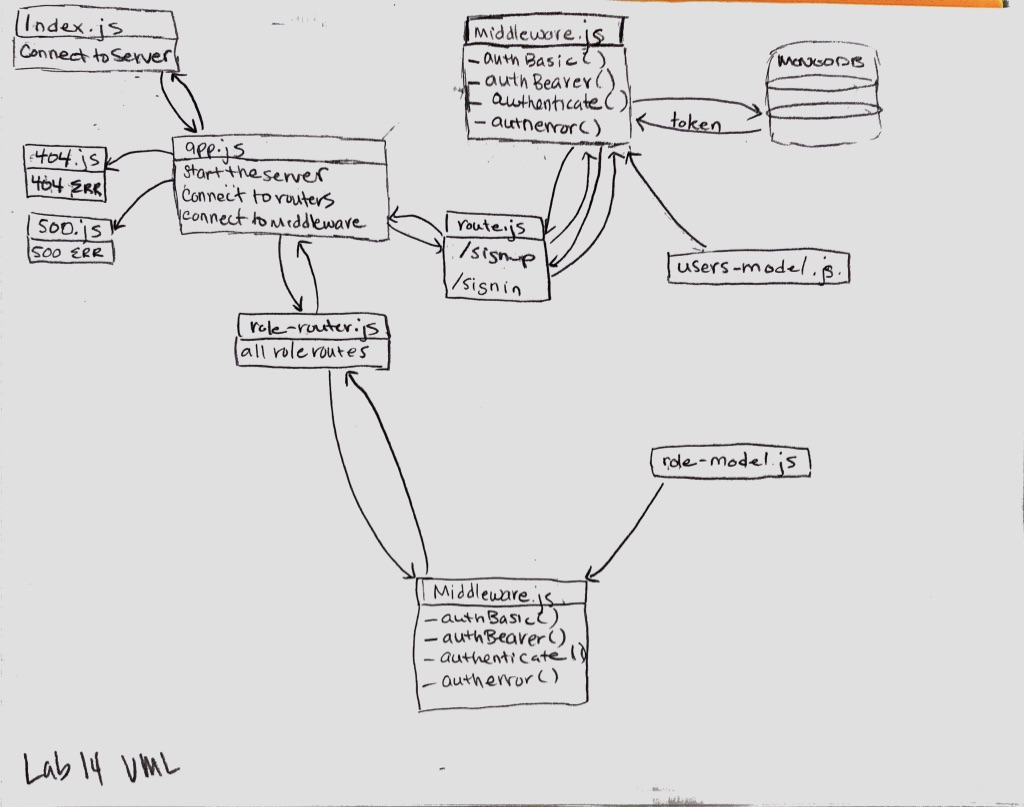 Index.js
Connect to Server
Middleware.js
- authBasic()
- authBearer()
- authenticate()
- autherror()
MONGODB
token
404.js
404 ERR
500.js
500 ERR
app.js
Start the server
Connect to routers
Connect to Middleware
route.js
/signup
/signin
users-model.js
role-router.js
all role routes
role-model.js
Middleware.js
- authBasic()
- authBearer()
- authenticate()
- autherror()
Lab 14 UML